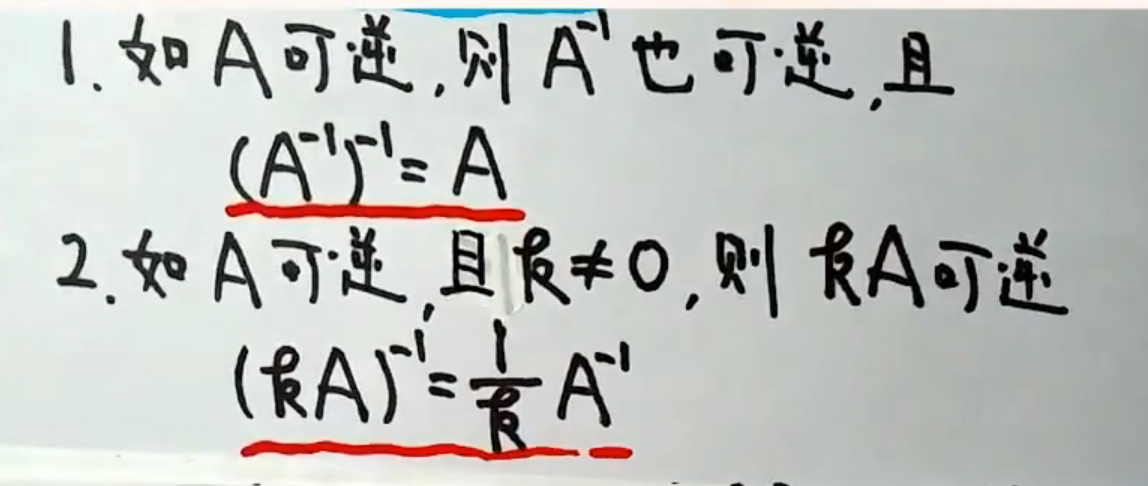 1. 如 A 可逆, 则 A⁻¹ 也可逆, 且
(A⁻¹)⁻¹ = A
2. 如 A 可逆, 且 k ≠ 0, 则 kA 可逆
(kA)⁻¹ = 1/k A⁻¹